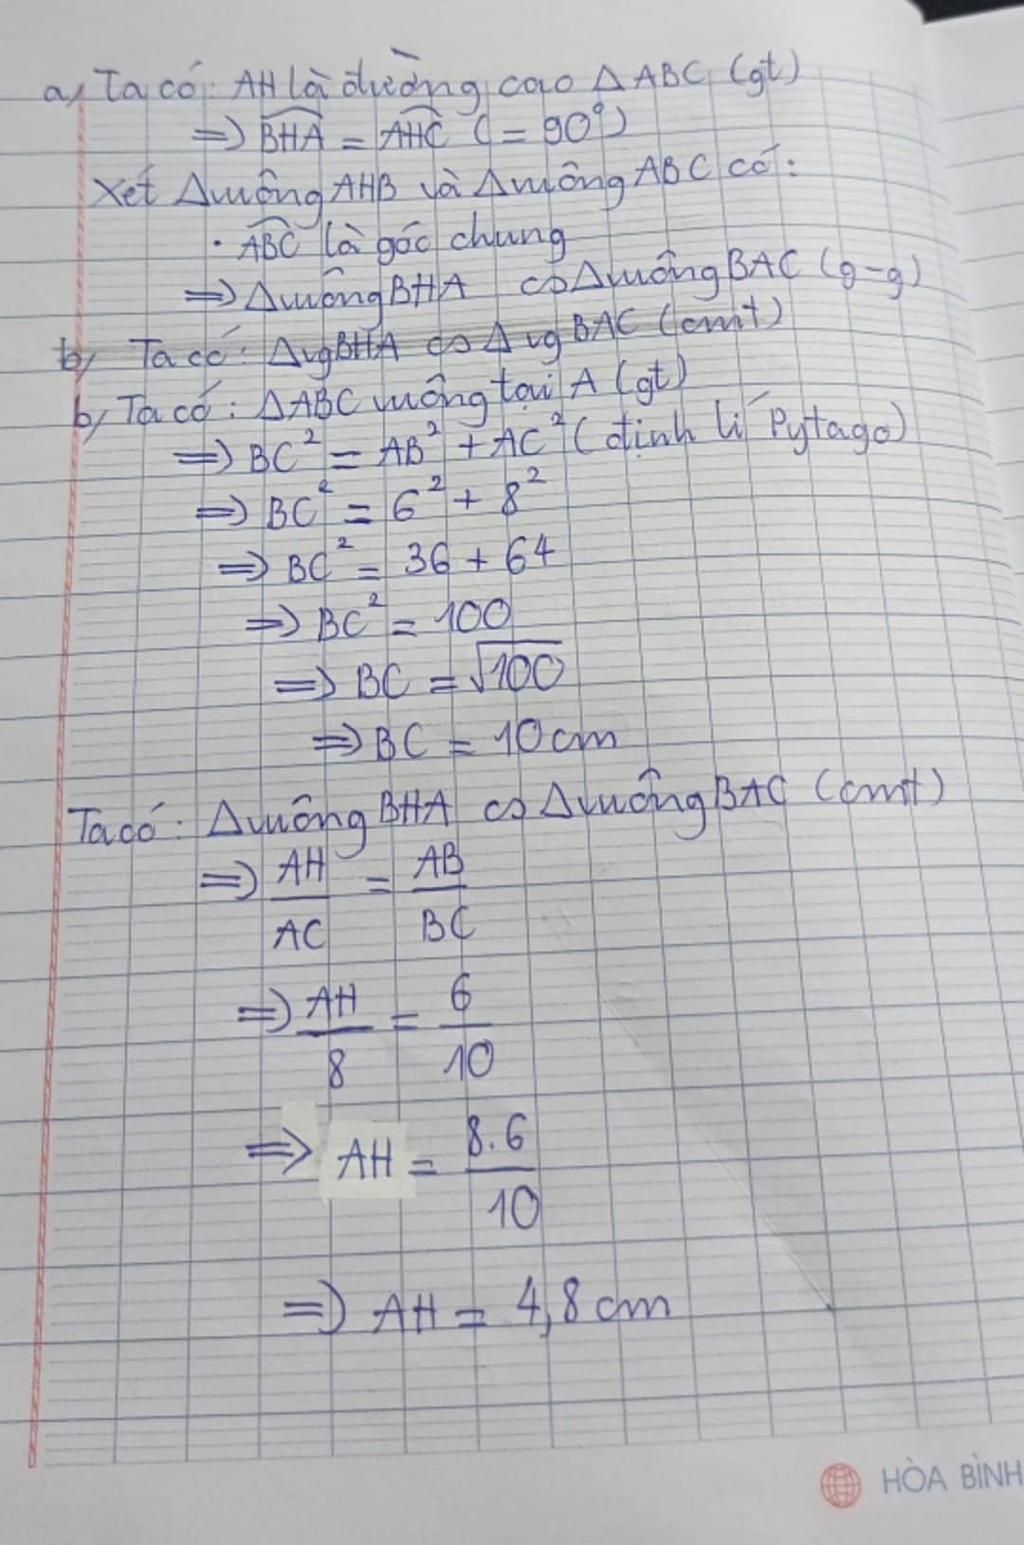 a, Ta có: AH là đường cao ΔABC (gt)
=> BHA = AHC (= 90°)
Xét Δvuông AHB và Δvuông ABC có:
· ABC là góc chung
=> Δvuông BHA ∽ Δvuông BAC (g-g)
b, Ta có: ΔvgBHA ∽ Δ vg BAC (cmt)
b, Ta có: ΔABC vuông tại A (gt)
=> BC² = AB² + AC² (định lí Pytago)
=> BC² = 6² + 8²
=> BC² = 36 + 64
=> BC² = 100
=> BC = √100
=> BC = 10cm
Ta có: Δvuông BHA ∽ Δvuông BAC (cmt)
=> AH/AC = AB/BC
=> AH/8 = 6/10
=> AH = 8.6/10
=> AH = 4,8cm
HÒA BÌNH